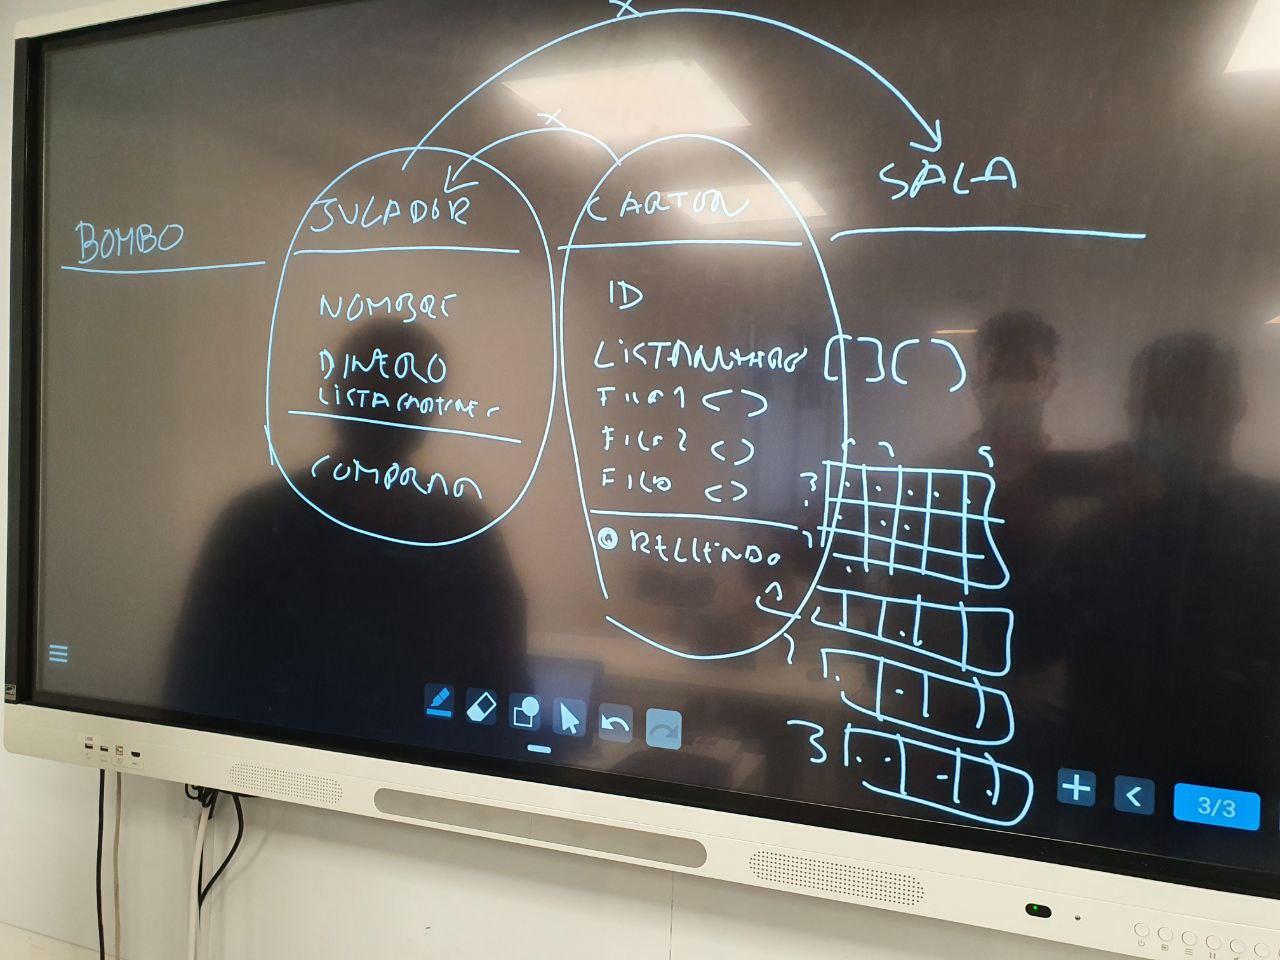 BOMBO
JUGADOR
NOMBRE
DINERO
LISTA CARTONES
COMPRAR
CARTON
ID
LISTA [ ] ( )
FILA 1 < >
FILA 2 < >
FILA < >
RELLENDO
SALA
X
X
3
1
2
3
3/3